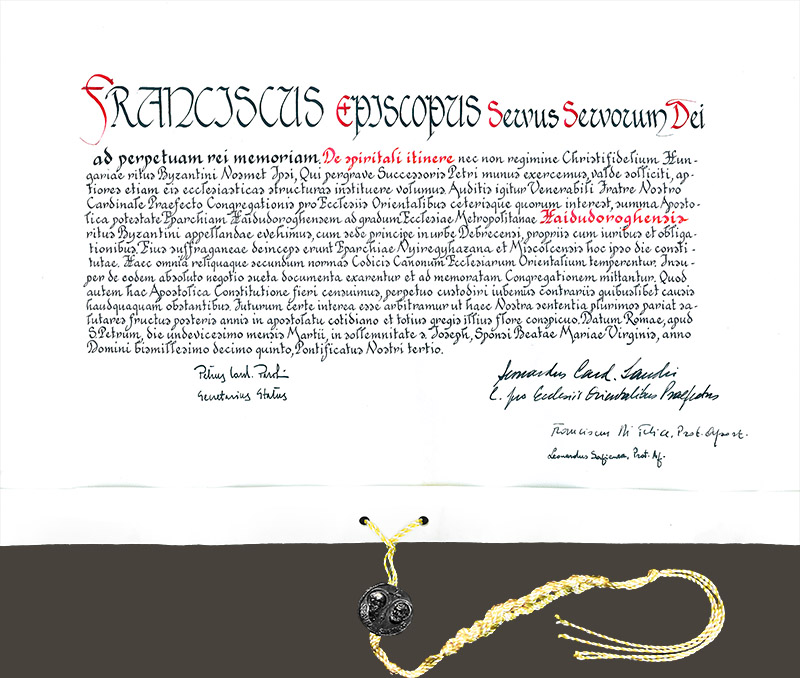 FRANCISCUS EPISCOPUS Servus Servorum Dei
ad perpetuam rei memoriam. De spiritali itinere nec non regimine Christifidelium Hun-
gariae ritus Byzantini Nosmet Ipsi, Qui pergrave Successoris Petri munus exercemus, valde solliciti, ap-
tiores etiam eis ecclesiasticas structuras instituere volumus. Auditis igitur Venerabili Fratre Nostro
Cardinale Praefecto Congregationis pro Ecclesiis Orientalibus ceterisque quorum interest, summa Aposto-
lica potestate Eparchiam Haidudoroghensem ad gradum Ecclesiae Metropolitanae Haidudoroghensis
ritus Byzantini appellandae evehimus, cum sede principe in urbe Debrecensi, propriis cum iuribus et obliga-
tionibus. Eius suffraganeae deinceps erunt Eparchiae Nyiregyhazana et Miscolcensis hoc ipso die consti-
tutae. Haec omnia reliquaque secundum normas Codicis Canonum Ecclesiarum Orientalium temperentur. Insu-
per de eodem absoluto negotio sueta documenta exarentur et ad memoratam Congregationem mittantur. Quod
autem hac Apostolica Constitutione fieri censuimus, perpetuo custodiri iubemus contrariis quibuslibet causis
haudquaquam obstantibus. Futurum certe interea esse arbitramur ut haec Nostra sententia plurimos pariat sa-
lutares fructus posteris annis in apostolatu cotidiano et totius gregis illius flore conspicuo. Datum Romae, apud
S. Petrum, die undevicesimo mensis Martii, in sollemnitate s. Ioseph, Sponsi Beatae Mariae Virginis, anno
Domini bismillesimo decimo quinto, Pontificatus Nostri tertio.
Petrus Card. Parolin
Secretarius Status
Leonardus Card. Sandri
C. pro Ecclesiis Orientalibus Praefectus
Franciscus Di Felice, Prot. Apost.
Leonardus Sapienza, Prot. Ap.